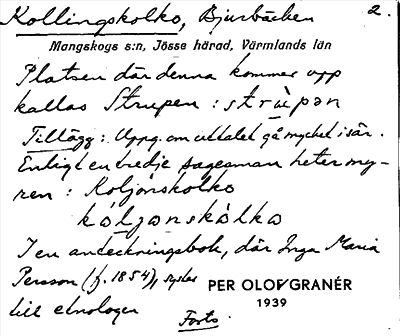 Kollingskolko, Bjurbäcken 2.
Mangskogs s:n, Jösse härad, Värmlands län
Platsen där denna kommer upp
kallas Strupen : strùpan
Tillägg : Uppg. om uttalet gå mycket isär.
Enligt en tredje sagesman heter my-
ren : Koljonskolko
kòljonskålko
I en anteckningsbok, där Inga Maria
Persson (f. 1854), syster
till etnologen
PER OLOF GRANÉR
1939
Forts.